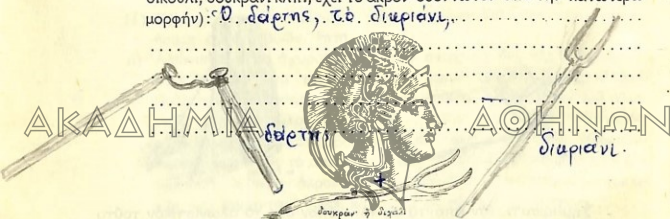 μορφήν): Ὁ δάρτης, τὸ δικριάνι,
ΑΚΑΔΗΜΙΑ ΑΘΗΝΩΝ
δάρτης
δικριάνι.
δουκράν' ἢ διχάλι